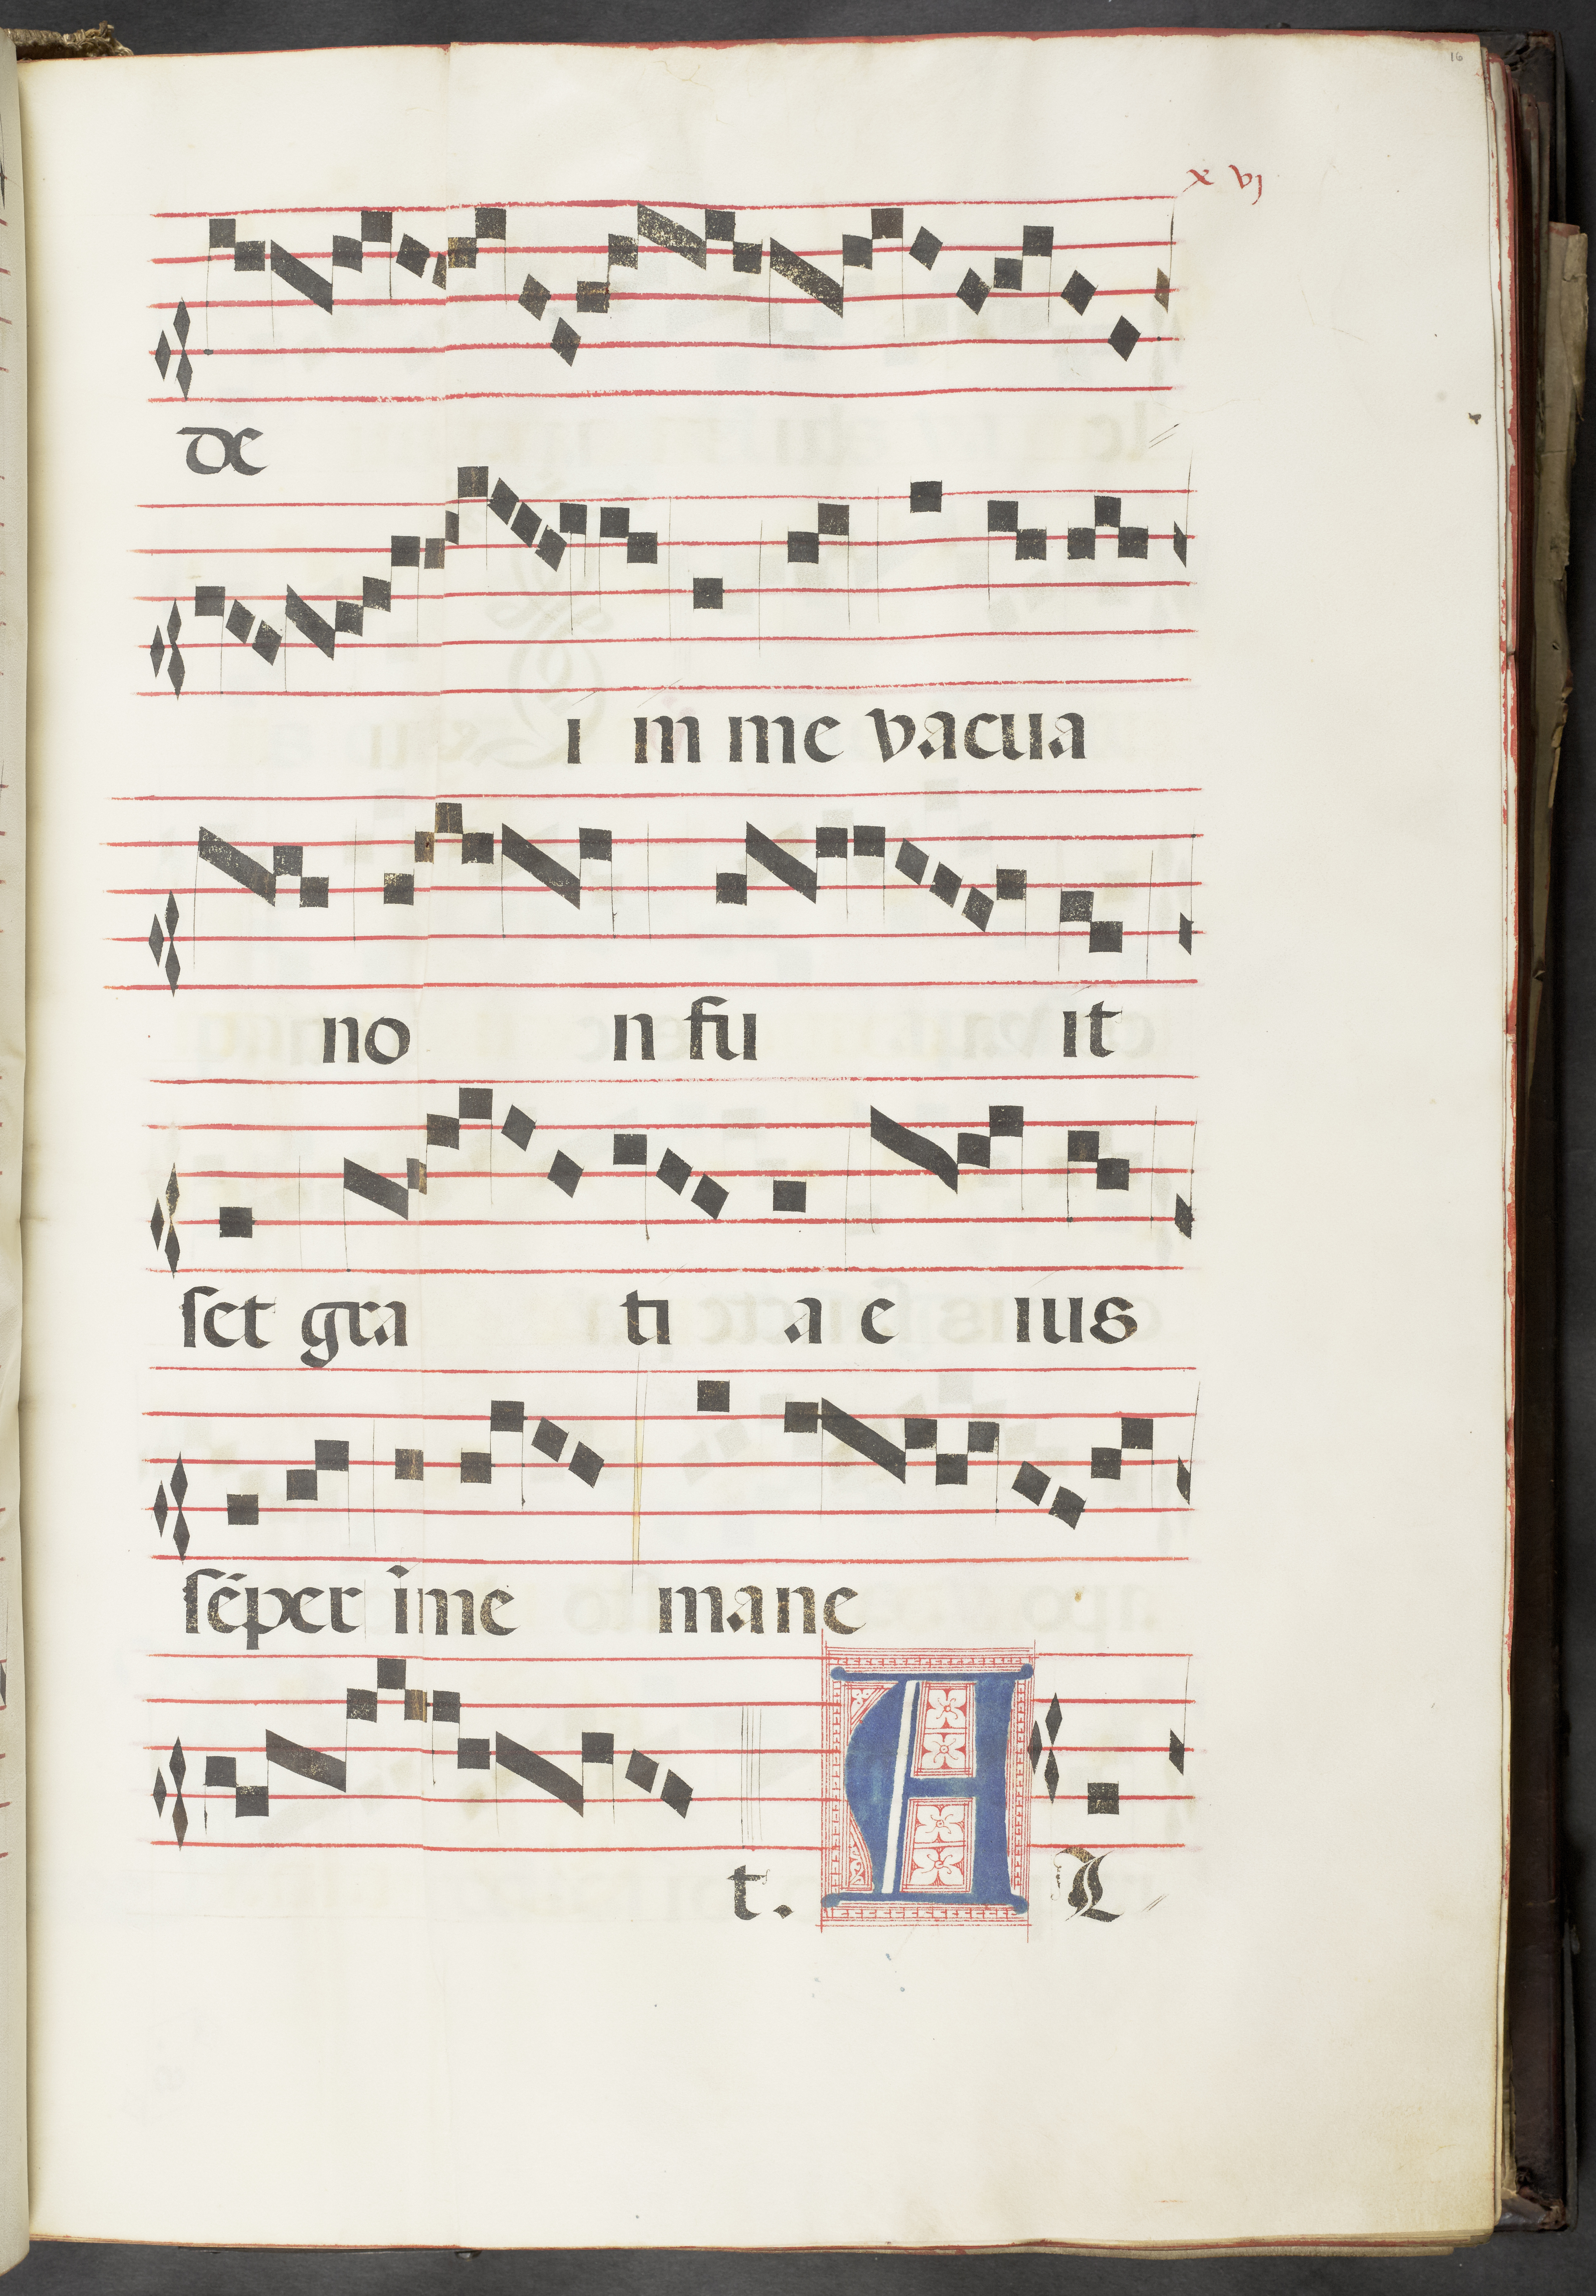 16
x vj
de
i in me vacua
no n fu it
ſet gra ti a e ius
ſēper ī me mane
t. A L